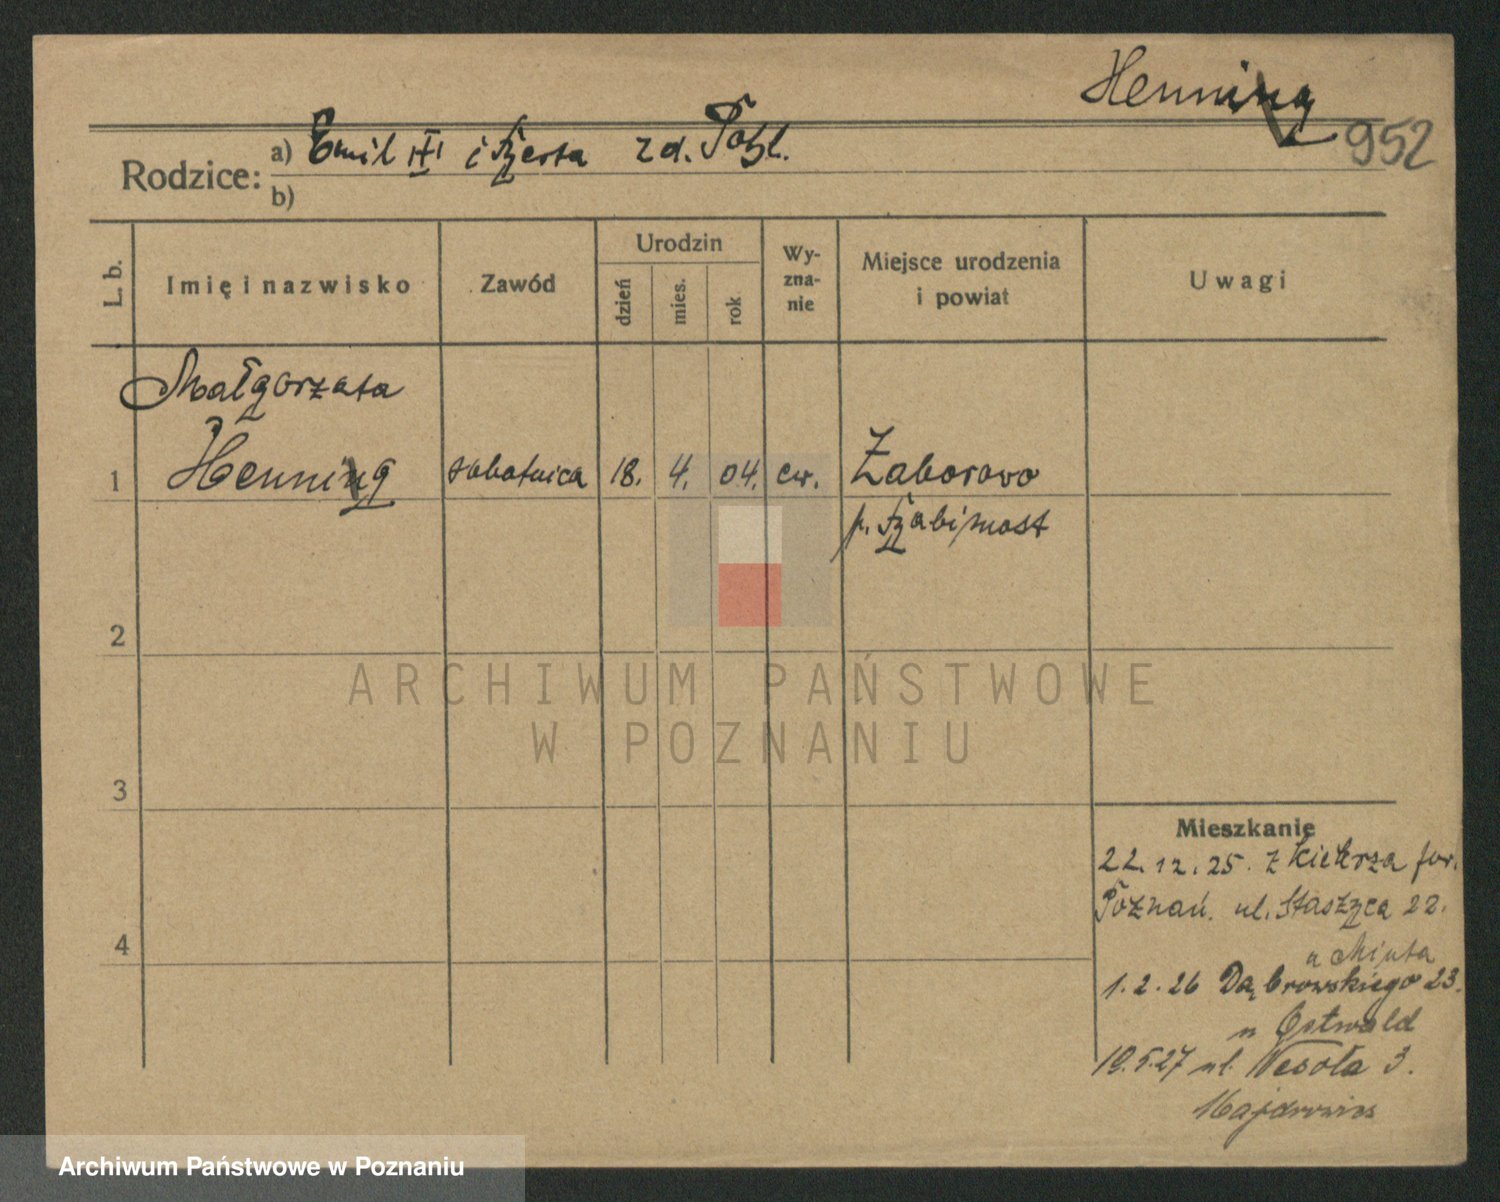 Henning
952
Rodzice: a) Emil i Berta zd. Pohl.
b)
L. b.
Imię i nazwisko
Zawód
Urodzin
dzień
mies.
rok
Wy-
zna-
nie
Miejsce urodzenia
i powiat
Uwagi
Małgorzata
1 Henning robotnica 18. 4. 04. ew. Zaborowo
p. Babimost
2
ARCHIWUM PAŃSTWOWE
W POZNANIU
3
Mieszkanie
22.12.25. z Kiekrza
Poznań. ul. Staszyca 22.
4
u
1.2.26 Dąbrowskiego 23.
u Ostwald
5.27 ul. Wesoła 3.
Archiwum Państwowe w Poznaniu